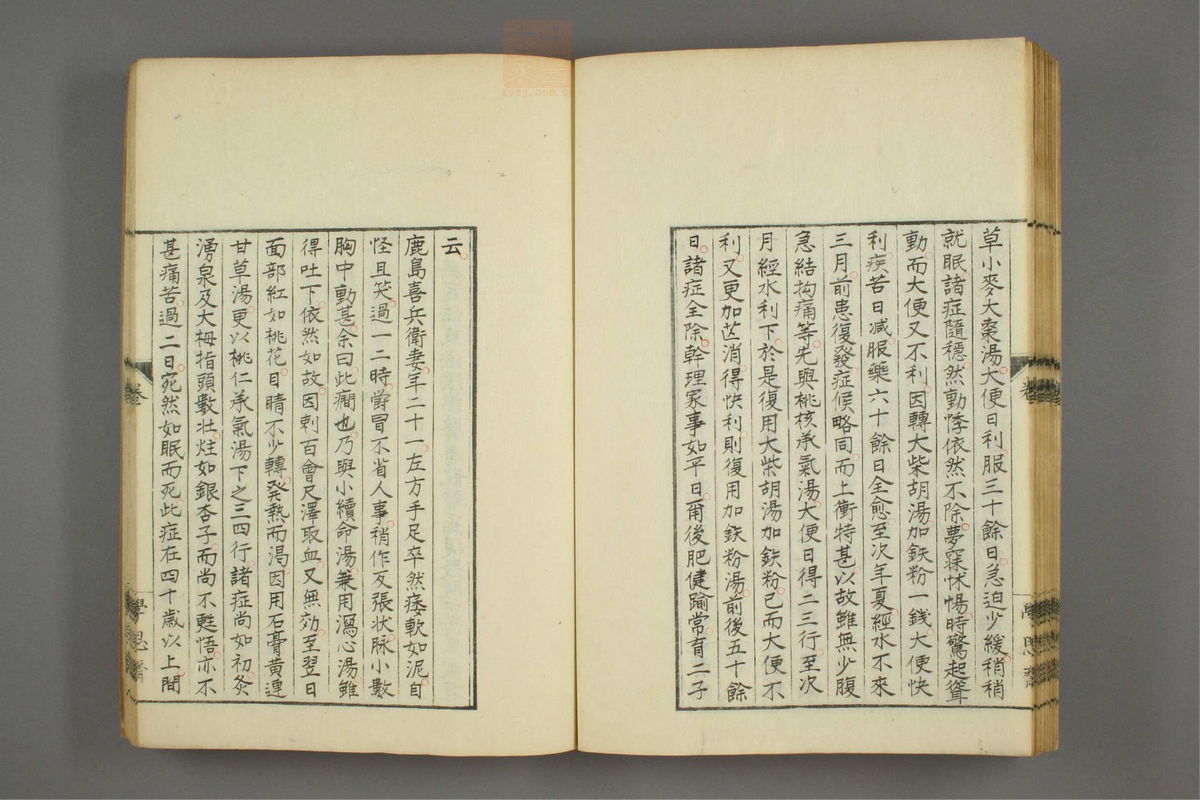 草小麥大棗湯大便日利服三十餘日急迫少緩稍稍
就眠諸症隨穩然動悸依然不除夢寐怵惕時驚起聳
動而大便又不利因轉大柴胡湯加鉄粉一錢大便快
利疾苦日减服藥六十餘日全愈至次年夏經水不來
三月前患復發症候略同而上衝特甚以故雖無少腹
急結拘痛等先與桃核承氣湯大便日得二三行至次
月經水利下於是復用大柴胡湯加鉄粉已而大便不
利又更加芒消得快利則復用加鉄粉湯前後五十餘
日諸症全除幹理家事如平日爾後肥健踰常育二子
云
鹿島喜兵衛妻年二十一左方手足卒然痿軟如泥自
怪且笑過一二時欝冒不省人事稍作反張状脉小數
胸中動甚余曰此癇也乃與小續命湯兼用瀉心湯雖
得吐下依然如故因刺百會尺澤取血又無効至翌日
面部紅如桃花目睛不少轉發熱而渴因用石膏黄連
甘草湯更以桃仁承氣湯下之三四行諸症尚如初灸
湧泉及大拇指頭數壮炷如銀杏子而尚不甦悟亦不
甚痛苦過二日宛然如眠而死此症在四十歳以上間
卷
學思齋